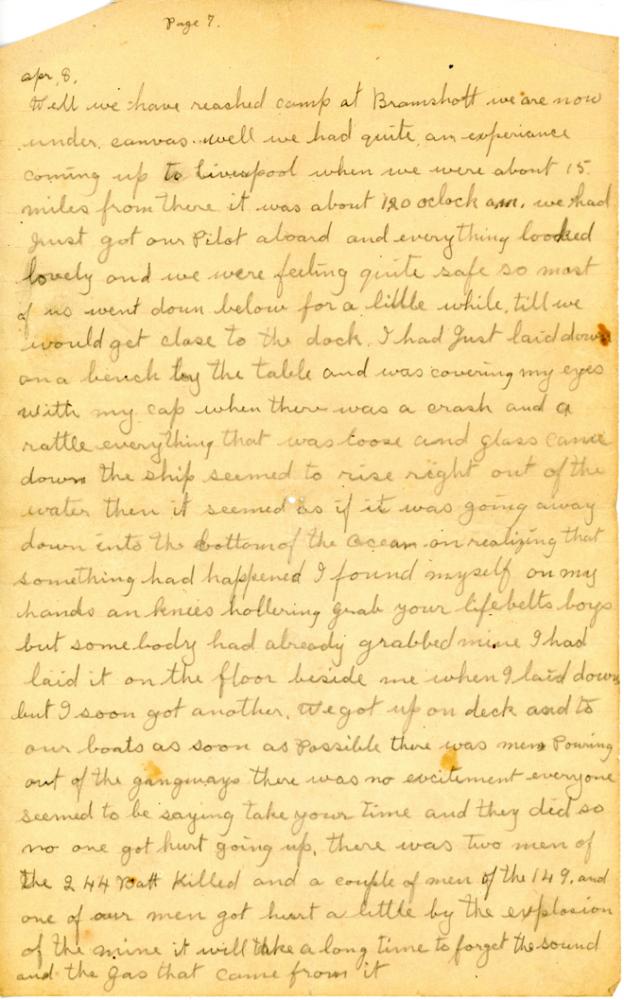 Page 7.
apr, 8,
Well we have reached camp at Bramshott we are now
under canvas. well we had quite an experiance
coming up to Liverpool when we were about 15
miles from there it was about 120 oclock am. we had
Just got our Pilot aboard and everything looked
lovely and we were feeling quite safe so most
of us went down below for a little while, till we
would get close to the dock. I had Just laid down
on a bench by the table and was covering my eyes
with my cap when there was a crash and a
rattle everything that was loose and glass came
down the ship seemed to rise right out of the
water then it seemed as if it was going away
down into the bottom of the ocean on realizing that
something had happened I found myself on my
hands an knees hollering grab your lifebelts boys
but somebody had already grabbed mine I had
laid it on the floor beside me when I laid down
but I soon got another. We got up on deck and to
our boats as soon as Possible there was men Pouring
out of the gangways there was no excitement everyone
seemed to be saying take your time and they did so
no one got hurt going up, there was two men of
the 244 Batt Killed and a couple of men of the 149. and
one of our men got hurt a little by the explosion
of the mine it will take a long time to forget the sound
and the gas that came from it